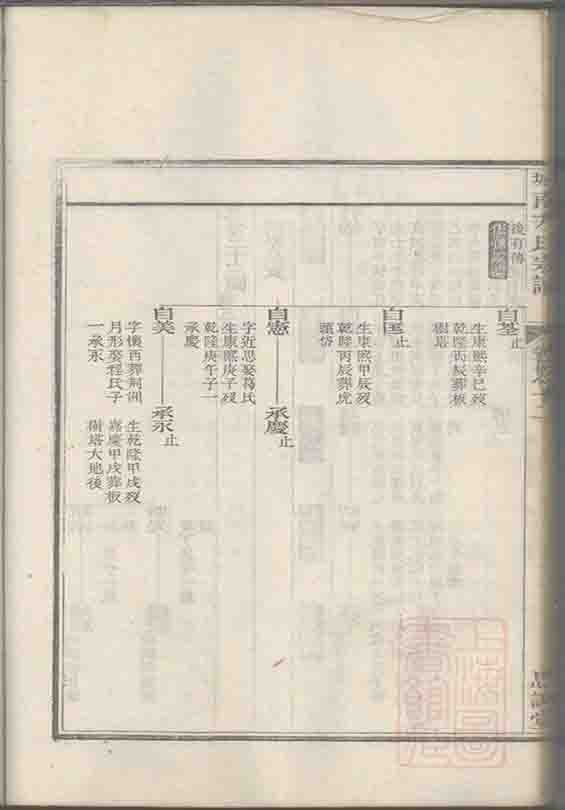 後有傳
自荃止
生康熙辛巳歿
乾隆丙辰葬板
樹塔
自国止
生康熙甲辰歿
乾隆丙辰葬虎
頭岱
自憲
承慶止
字近思娶葛氏
生康熙庚子歿
乾隆庚午子一
承慶
自美
承永止
字懷百葬荊洲
月形娶程氏子
一承永
生乾隆甲戌歿
嘉慶甲戌葬板
樹塔大地後